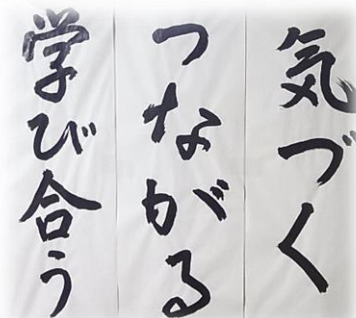 気づく
つながる
学び合う